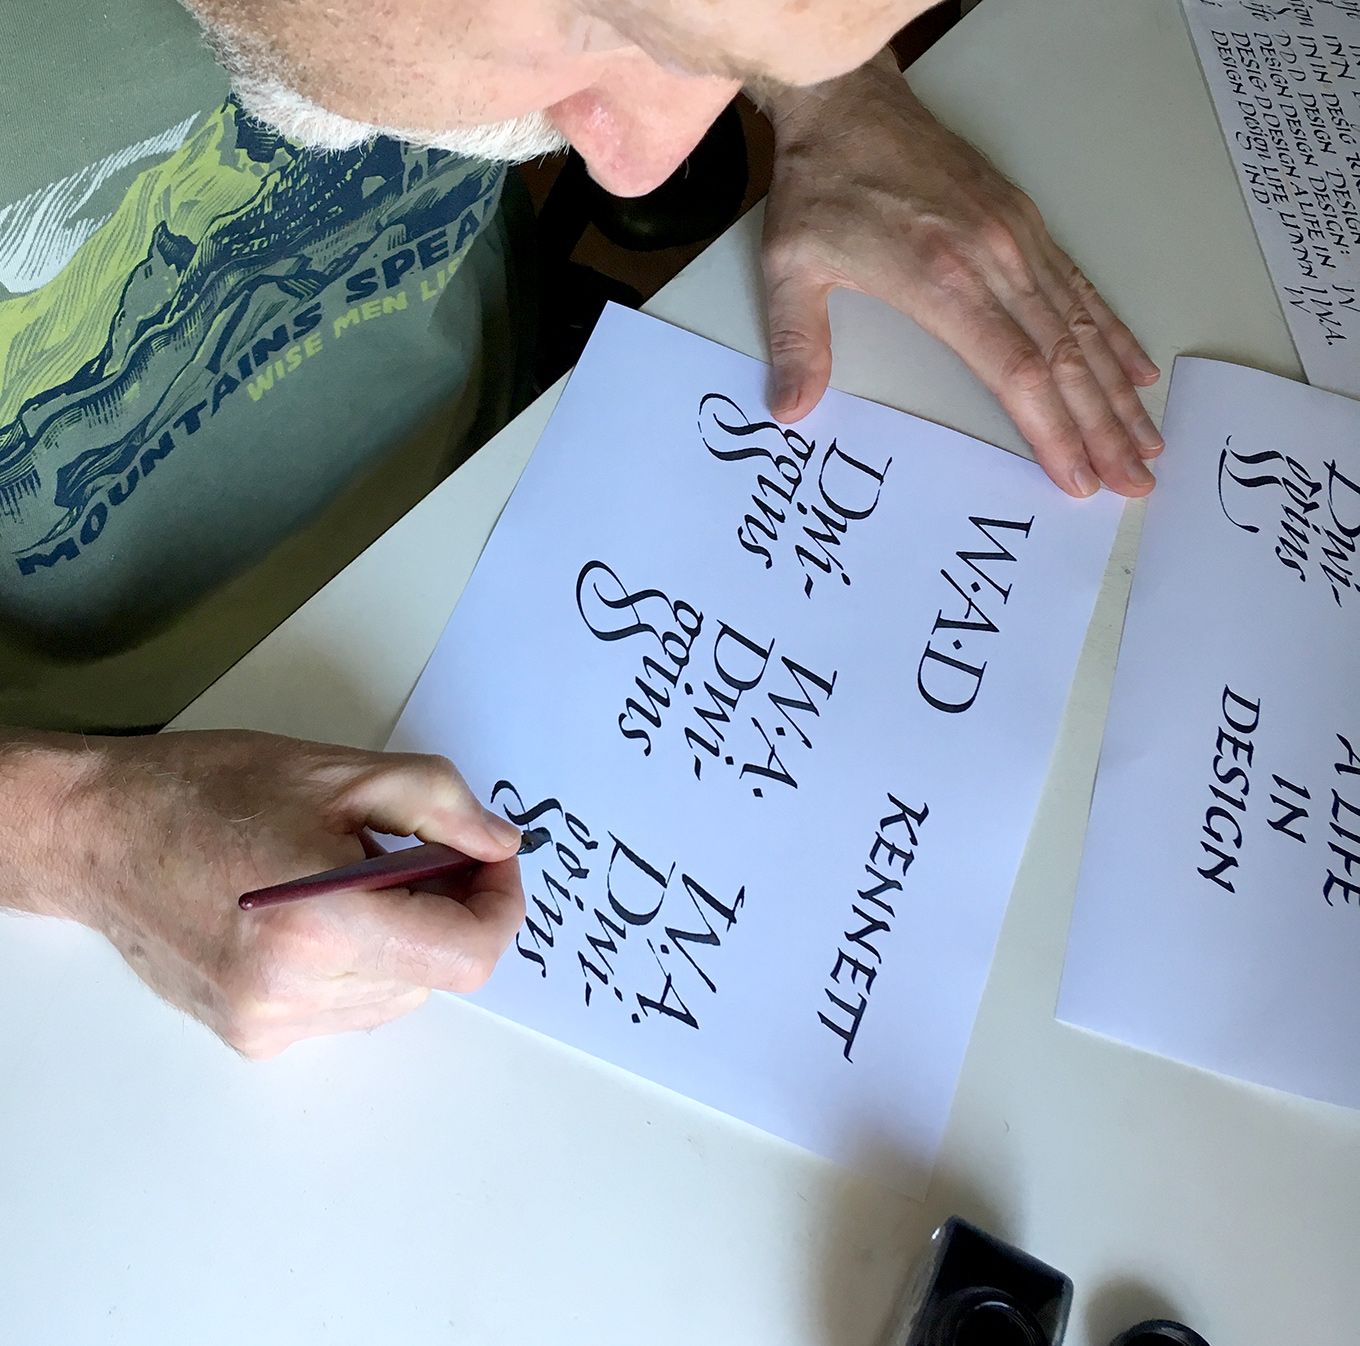 MOUNTAINS SPEA
WISE MEN LIS
W·A·D KENNETT
Dwi-
ggins
W·A.
Dwi-
ggins
W·A.
Dwi-
ggins
Dwi-
ggins
A LIFE
IN
DESIGN
INN DESIG DESIGN
IN IN DESIGN DESIGN:
D D D DESIGN A LIFE IN
DESIGN D DESIGN LIFE
DESIG D Design LIFE
DESIGN Design IN D'